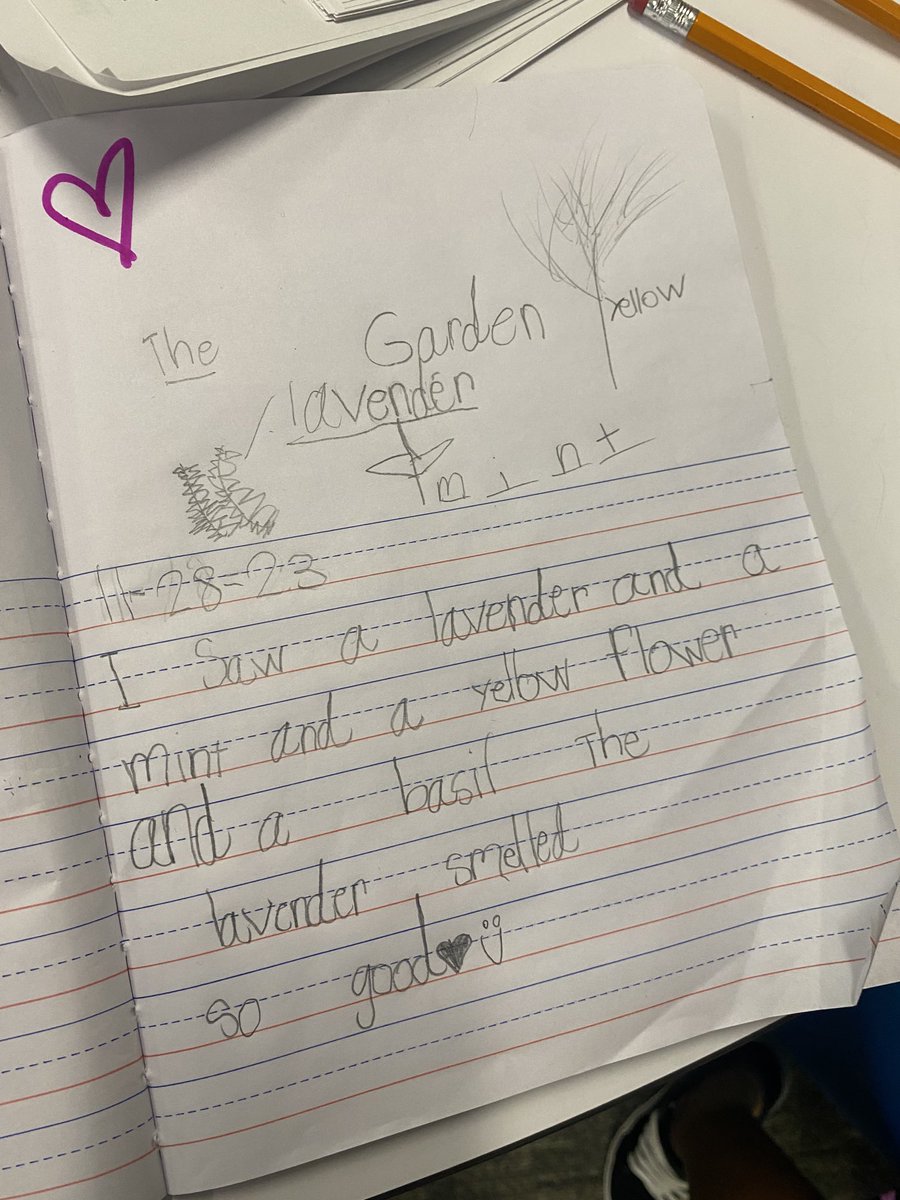 The Garden
yellow
lavender
mint
11-28-23
I saw a lavender and a
mint and a yellow flower
and a basil The
lavender smelled
so good♥